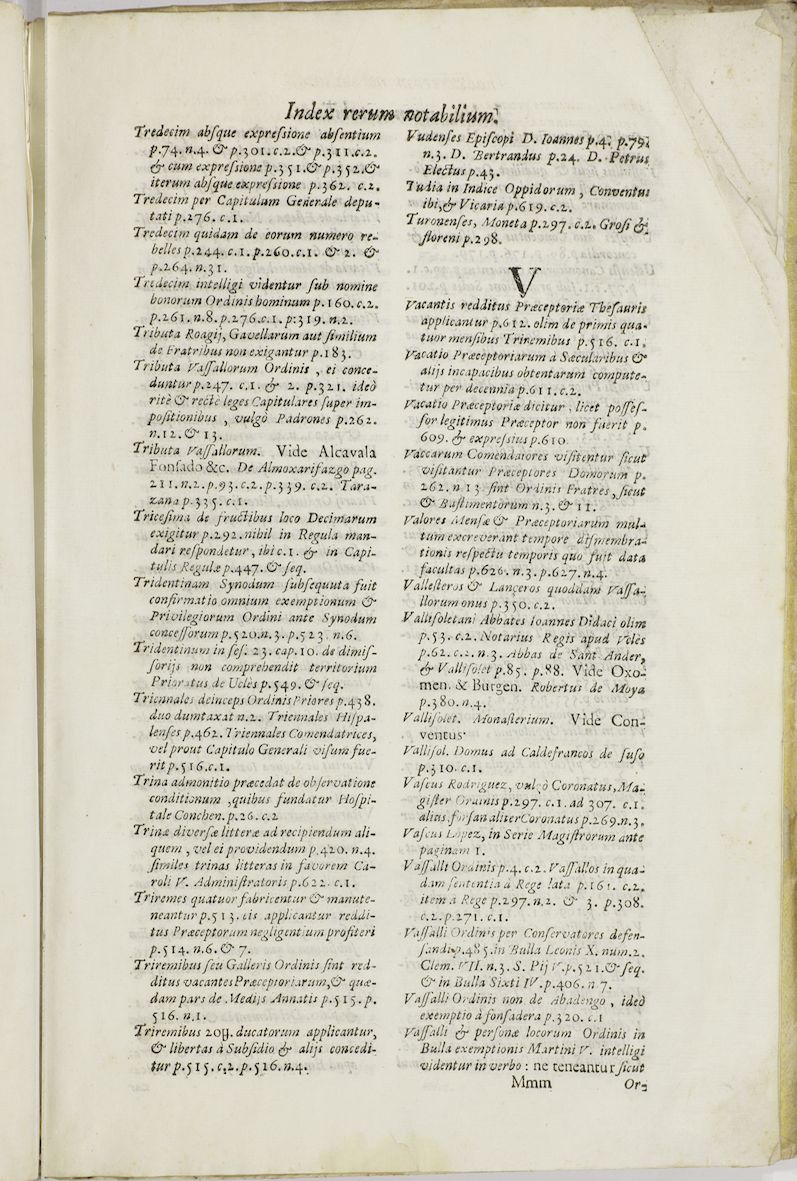 Index rerum notabilium.
Tredecim abſque expreſſione abſentium
p.74. n.4. & p.301. c.2. & p.311. c.2.
& cum expreſſione p.351. & p.352. &
iterum abſque expreſſione p.362. c.2.
Tredecim per Capitulum Generale depu-
tati p.276. c.1.
Tredecim quidam de eorum numero re-
belles p.244. c.1. p.260. c.1. & 2. &
p.264. n.31.
Tredecim intelligi videntur ſub nomine
bonorum Ordinis hominum p.160. c.2.
p.261. n.8. p.276. c.1. p:319. n.2.
Tributa Roagij, Gavellarum aut ſimilium
de Fratribus non exigantur p.183.
Tributa Vaſſallorum Ordinis , ei conce-
duntur p.247. c.1. & 2. p.321. ideò
ritè & rectè leges Capitulares ſuper im-
poſitionibus , vulgò Padrones p.262.
n.12. & 13.
Tributa Vaſſallorum. Vide Alcavala
Fonſado &c. De Almoxarifazgo pag.
211. n.2. p.93. c.2. p.339. c.2. Tara-
zana p.335. c.1.
Triceſima de fructibus loco Decimarum
exigitur p.292. nihil in Regula man-
dari reſpondetur, ibi c.1. & in Capi-
tulis Regulæ p.447. & ſeq.
Tridentinam Synodum ſubſequuta fuit
confirmatio omnium exemptionum &
Privilegiorum Ordini ante Synodum
conceſſorum p.520. n.3. p.523. n.6.
Tridentinum in ſeſ. 23. cap.10. de dimiſ-
ſorijs non comprehendit territorium
Prioratus de Uclès p.549. & ſeq.
Triennales deinceps Ordinis Priores p.438.
duo dumtaxat n.2. Triennales Hiſpa-
lenſes p.462. Triennales Comendatrices,
vel prout Capitulo Generali viſum fue-
rit p.516. c.1.
Trina admonitio præcedat de obſervatione
conditionum , quibus fundatur Hoſpi-
tale Conchen. p.26. c.2
Trinæ diverſæ litteræ ad recipiendum ali-
quem , vel ei providendum p.420. n.4.
ſimiles trinas litteras in favorem Ca-
roli V. Adminiſtratoris p.622. c.1.
Triremes quatuor fabricentur & manute-
neantur p.513. eis applicantur reddi-
tus Præceptorum negligentium profiteri
p.514. n.6. & 7.
Triremibus ſeu Galleris Ordinis ſint red-
ditus vacantes Præceptoriarum, & quæ-
dam pars de Medijs Annatis p.515. p.
516. n.1.
Triremibus 20ɥ. ducatorum applicantur,
& libertas à Subſidio & alijs concedi-
tur p.515. c.2. p.516. n.4.
Vudenſes Epiſcopi D. Ioannes p.4. p.79.
n.3. D. Bertrandus p.24. D. Petrus
Electus p.43.
Tudia in Indice Oppidorum , Conventus
ibi, & Vicaria p.619. c.2.
Turonenſes, Moneta p.297. c.2. Groſi &
floreni p.298.
V
Vacantis redditus Præceptoriæ Theſauris
applicantur p.612. olim de primis qua-
tuor menſibus Triremibus p.516. c.1.
Vacatio Præceptoriarum à Sæcularibus &
alijs incapacibus obtentarum compute-
tur per decennia p.611. c.2.
Vacatio Præceptoriæ dicitur , licet poſſeſ-
ſor legitimus Præceptor non fuerit p.
609. & expreſſius p.610
Vaccarum Comendatores viſitentur ſicut
viſitantur Præceptores Domorum p.
262. n 13 ſint Ordinis Fratres , ſicut
& Baſtimentorum n.3. & 11.
Valores Menſæ & Præceptoriarum mul-
tum excreverant tempore diſmembra-
tionis reſpectu temporis quo fuit data
facultas p.626. n.3. p.627. n.4.
Valleſteros & Lanceros quoddam Vaſſa-
llorum onus p.350. c.2.
Valliſoletani Abbates Ioannes Didaci olim
p.53. c.2. Notarius Regis apud Velès
p.62. c.2. n.3. Abbas de Sant Ander,
& Valliſolet p.85. p.88. Vide Oxo-
men. & Burgen. Robertus de Moya
p.380. n.4.
Valliſolet. Monaſterium. Vide Con-
ventus
Valliſol. Domus ad Caldefrancos de ſuſo
p.310. c.1.
Vaſcus Rodriguez, vulgò Coronatus, Ma-
giſter Ordinis p.297. c.1. ad 307. c.1.
alius forſan aliter Coronatus p.269. n.3.
Vaſcus Lopez, in Serie Magiſtrorum ante
paginam 1.
Vaſſalli Ordinis p.4. c.2. Vaſſallos in qua-
dam ſententia à Rege lata p.161. c.2.
item à Rege p.297. n.2. & 3. p.308.
c.2. p.271. c.1.
Vaſſalli Ordinis per Conſervatores defen-
ſandi p.485. in Bulla Leonis X. num.2.
Clem. VII. n.3. S. Pij V. p.521. & ſeq.
& in Bulla Sixti IV. p.406. n 7.
Vaſſalli Ordinis non de Abadengo , ideò
exemptio à fonſadera p.320. c.1
Vaſſalli & perſonæ locorum Ordinis in
Bulla exemptionis Martini V. intelligi
videntur in verbo : ne teneantur ſicut
Mmm Or-